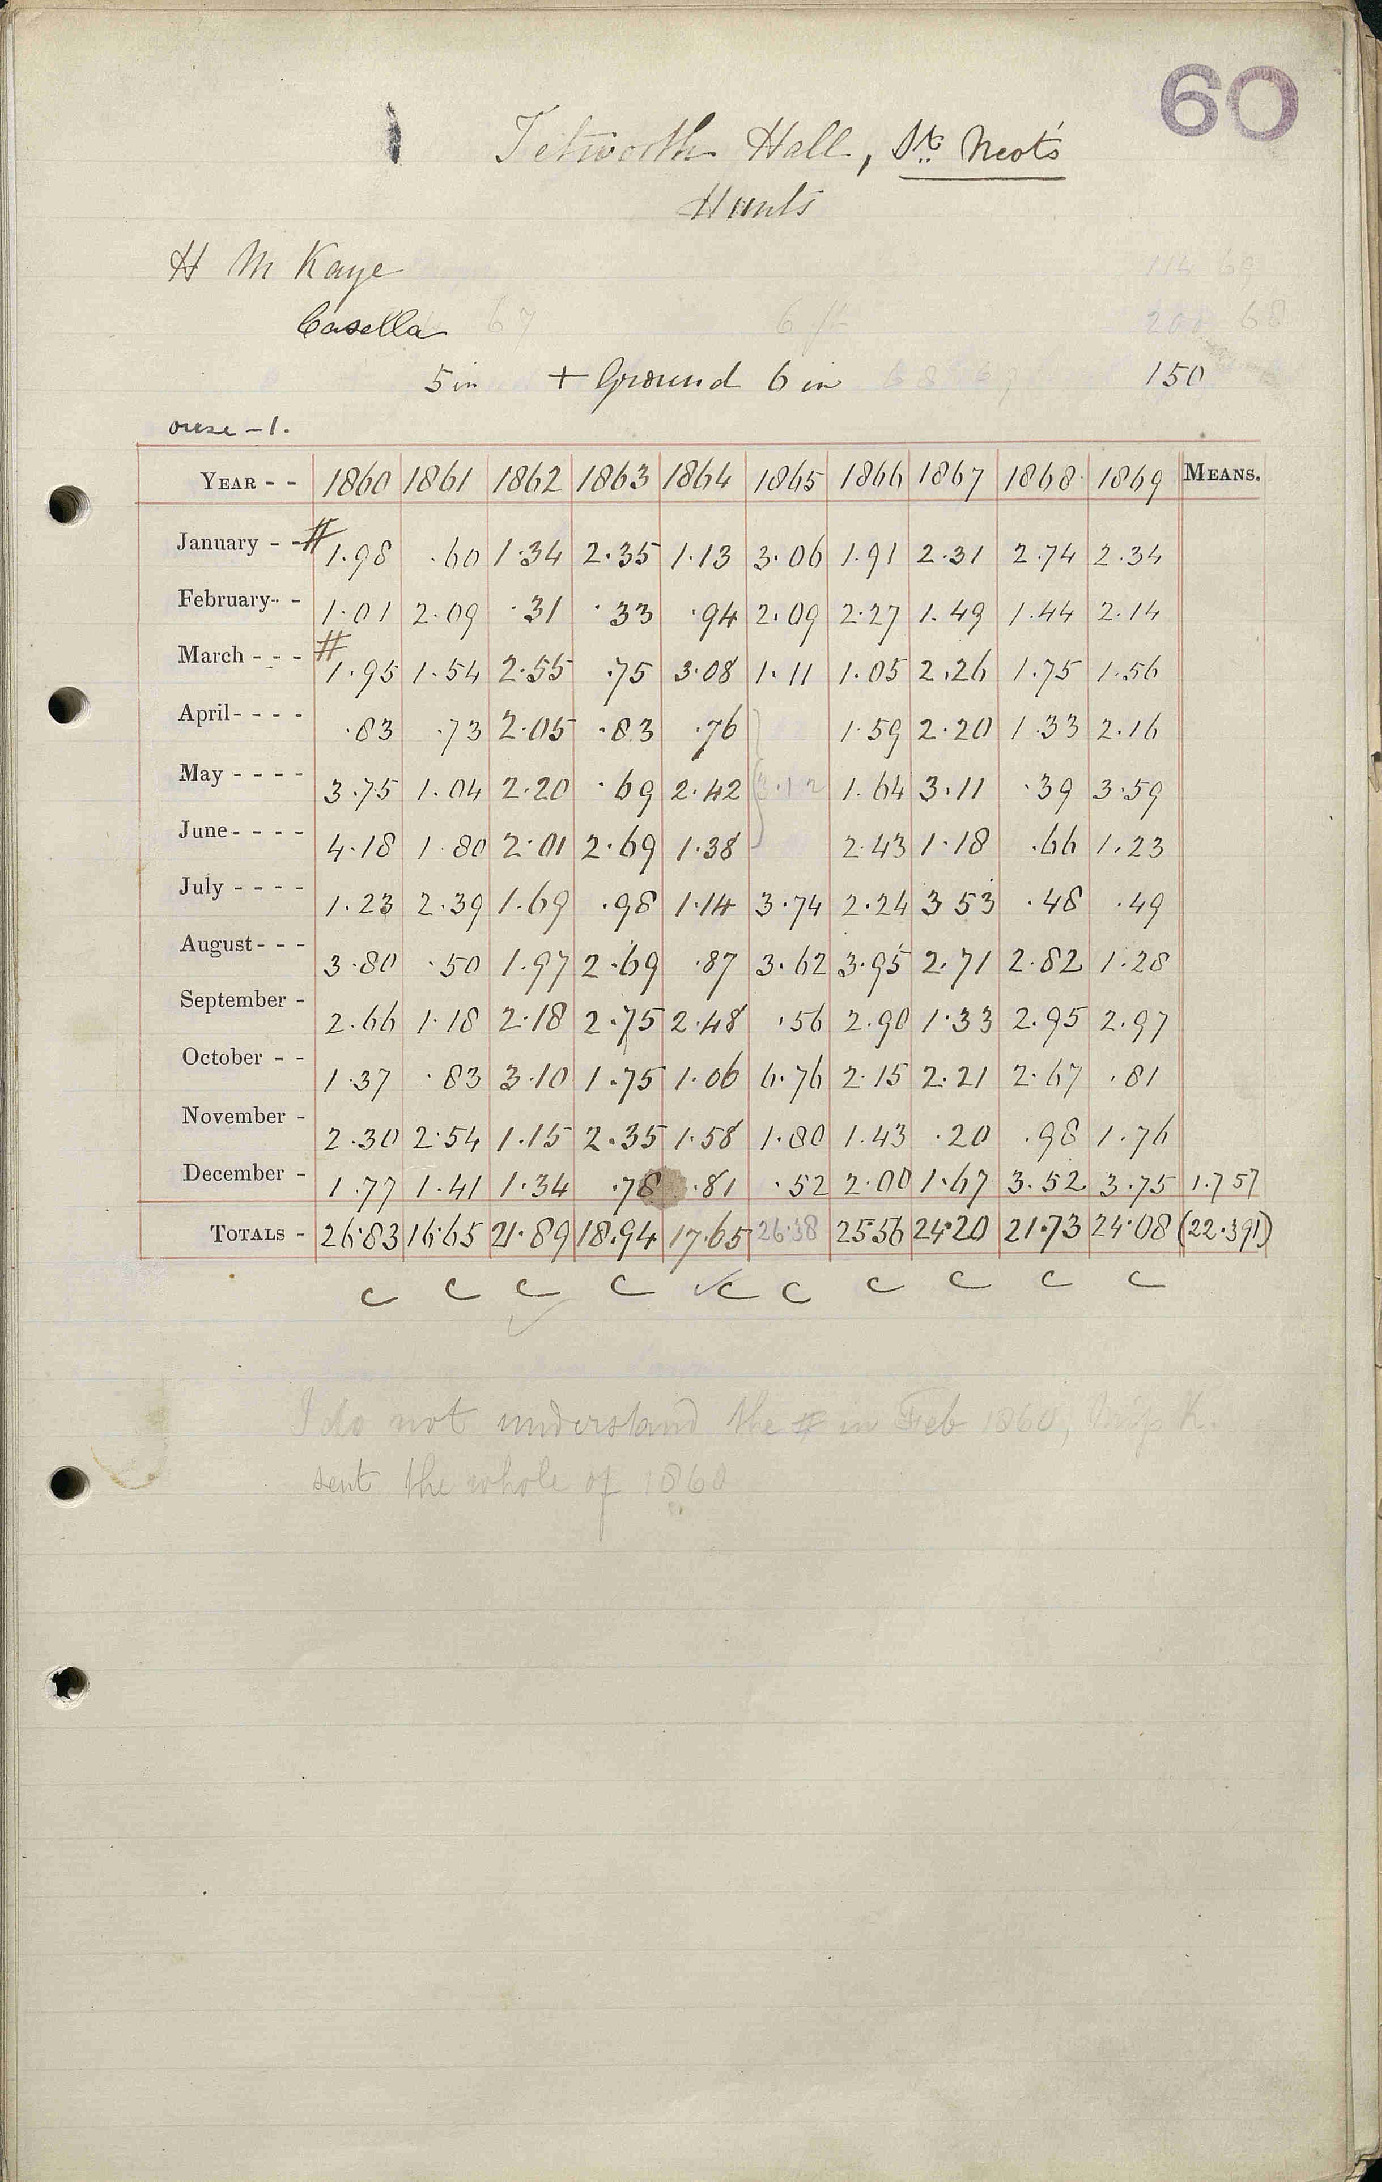 60
Tetworth Hall, St. Neot's
Hunts
H M Kaye
114 69
Casella 67 6 ft 200 68
5 in + Ground 6 in 150
ouse - 1.
YEAR - - 1860 1861 1862 1863 1864 1865 1866 1867 1868 1869 MEANS.
January - - # 1.98 .60 1.34 2.35 1.13 3.06 1.91 2.31 2.74 2.34
February - - 1.01 2.09 .31 .33 .94 2.09 2.27 1.49 1.44 2.14
March - - - # 1.95 1.54 2.55 .75 3.08 1.11 1.05 2.26 1.75 1.56
April - - - - .83 .73 2.05 .83 .76 1.59 2.20 1.33 2.16
May - - - - 3.75 1.04 2.20 .69 2.42 3.12 1.64 3.11 .39 3.59
June - - - - 4.18 1.80 2.01 2.69 1.38 2.43 1.18 .66 1.23
July - - - - 1.23 2.39 1.69 .98 1.14 3.74 2.24 3.53 .48 .49
August - - - 3.80 .50 1.97 2.69 .87 3.62 3.95 2.71 2.82 1.28
September - 2.66 1.18 2.18 2.75 2.48 .56 2.90 1.33 2.95 2.97
October - - 1.37 .83 3.10 1.75 1.06 6.76 2.15 2.21 2.67 .81
November - 2.30 2.54 1.15 2.35 1.58 1.80 1.43 .20 .98 1.76
December - 1.77 1.41 1.34 .78 .81 .52 2.00 1.67 3.52 3.75 1.757
TOTALS - 26.83 16.65 21.89 18.94 17.65 26.38 25.56 24.20 21.73 24.08 (22.391)
c c c c c c c c c c
I do not understand the # in Feb 1860, Miss K.
sent the whole of 1860